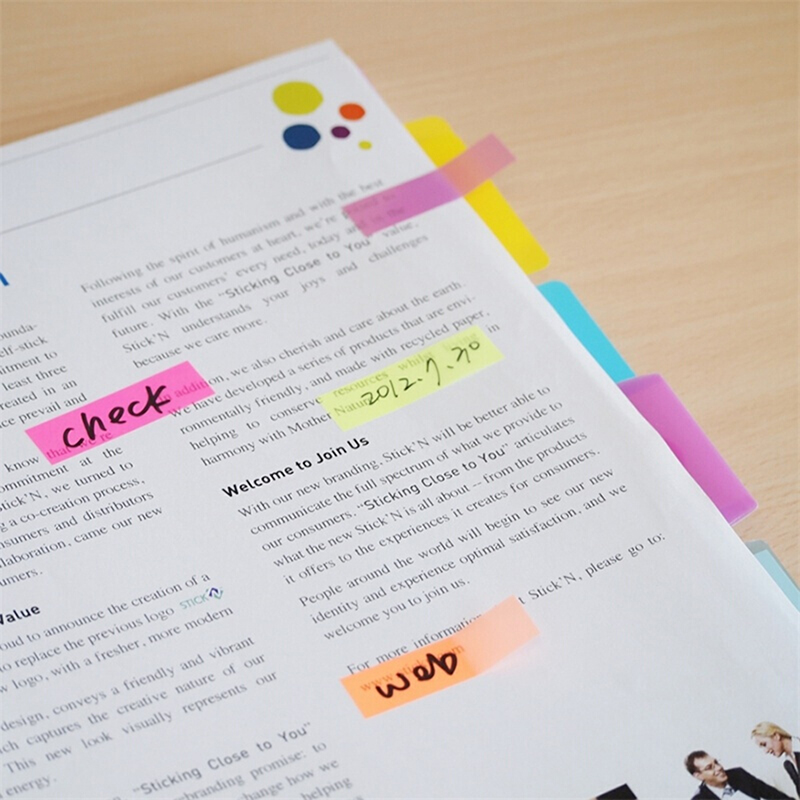 ounda-
elf-stick
itment to
least three
reated in an
ce prevail and
check
know that we're
ommitment at the
Stick'N, we turned to
g a co-creation process,
nsumers and distributors
llaboration, came our new
umers.
Value
oud to announce the creation of a
to replace the previous logo STICK'N
w logo, with a fresher, more modern
design, conveys a friendly and vibrant
ich captures the creative nature of our
This new look visually represents our
energy.
"Sticking Close to You"
branding promise: to
change how we
helping
Following the spirit of humanism and with the best
interests of our customers at heart, we're
fulfill our customers' every need, today and in the
future. With the "Sticking Close to You" value,
Stick'N understands your joys and challenges
because we care more.
In addition, we also cherish and care about the earth.
We have developed a series of products that are envi-
ronmentally friendly, and made with recycled paper,
helping to conserve resources whilst in
harmony with Mother Nature.
2012.7.30
Welcome to Join Us
With our new branding, Stick'N will be better able to
communicate the full spectrum of what we provide to
our consumers. "Sticking Close to You" articulates
what the new Stick'N is all about – from the products
it offers to the experiences it creates for consumers.
People around the world will begin to see our new
identity and experience optimal satisfaction, and we
welcome you to join us.
For more information t Stick'N, please go to:
web